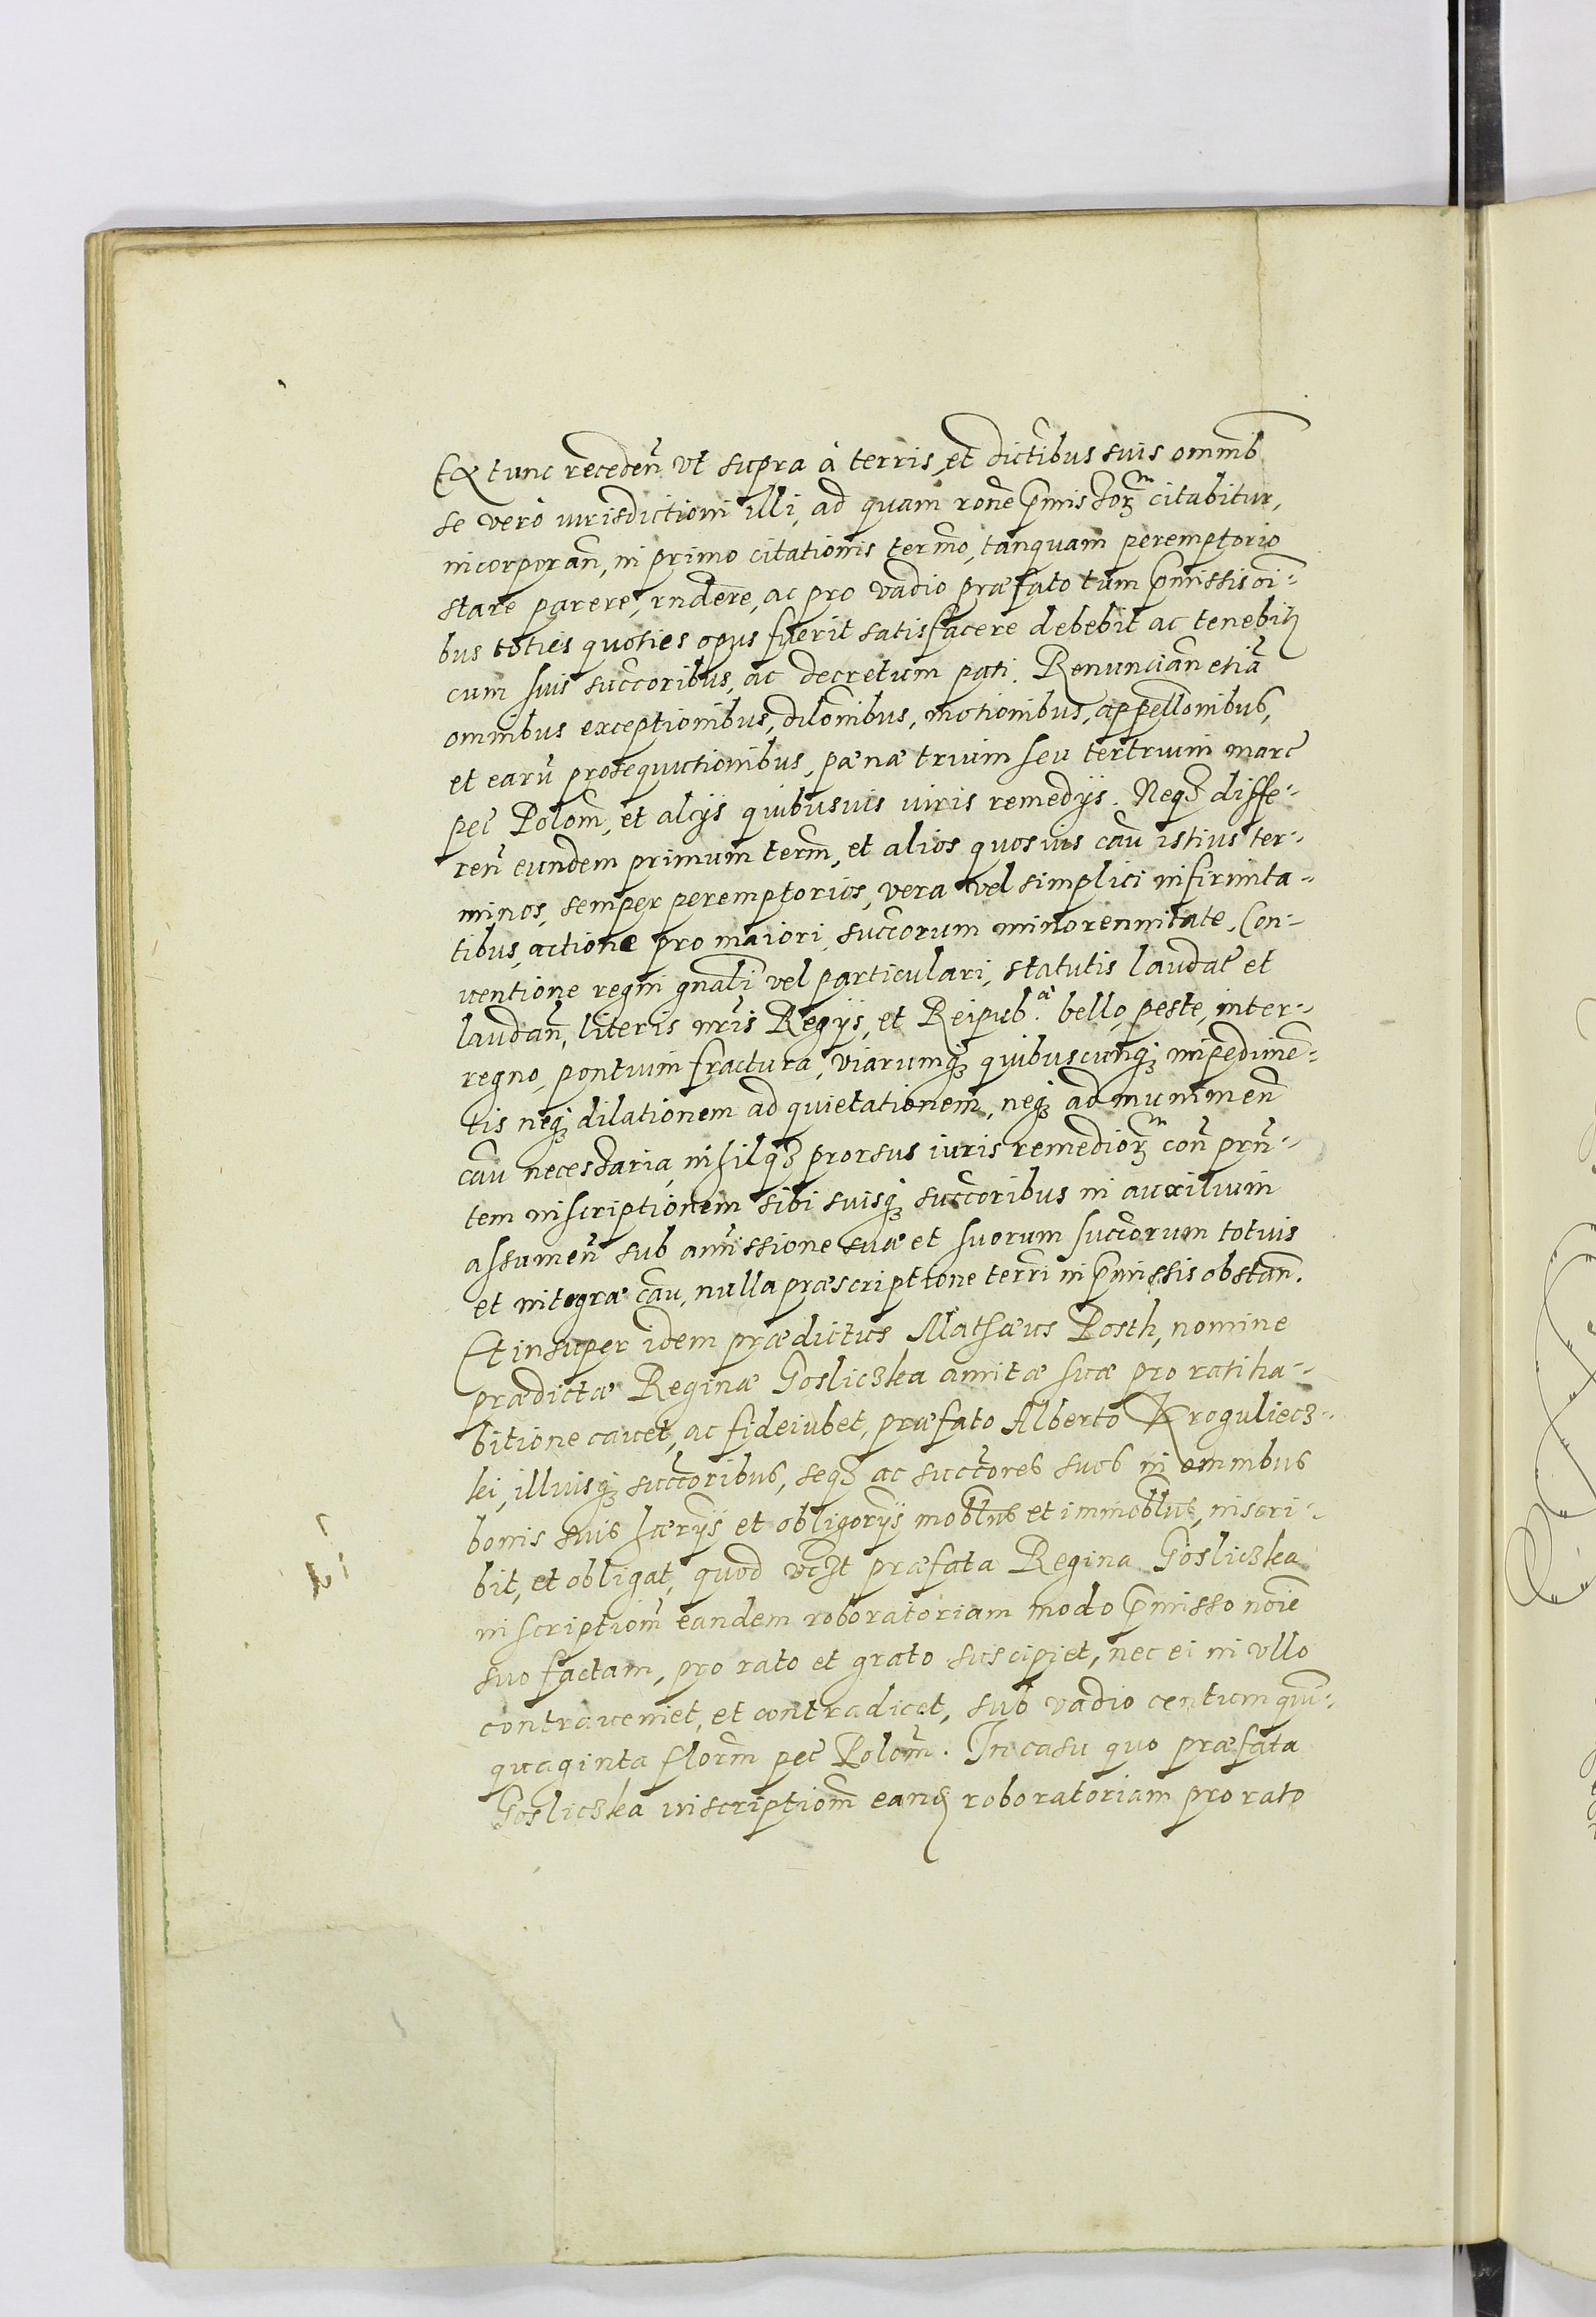 Ex tunc recedeñ vt supra à terris, et dictibus suis omnib
se verò iurisdictioni illi, ad quam rone p̃missorꝝ citabitur,
incorporañ, in primo citationis termo, tanquam peremptorio
stare parere, rndere, ac pro vadio præfato tum p̃missis oi-
bus toties quoties opus fuerit satisfacere debebit ac tenebitꝫ
cum suis succoribus, ac decretum pati. Renuncian̄ etiā
omnibus exceptionibus, dilonibus, motionibus, appellonibus,
et earū prosequutionibus, pænæ trium seu tertrium marc̄
pec̄ Polom̄, et alijs quibusuis iuris remedijs. Neqꝫ diffe-
ren̄ eundem primum term̄, et alios quosuis cau istius ter-
minos, semper peremptorios, vera vel simplici infirmita-
tibus, actione pro maiori, succorum minorennitate, Con-
uentione regni gnali vel particulari, statutis laudat̄ et
laudan̄, literis nris Regijs, et Reipub.ᵃ bello, peste, inter-
regno, pontium fractura, viarumqꝫ quibuscunqꝫ impedimē-
tis neqꝫ dilationem ad quietationem, neqꝫ ad munimen̄
cau necessaria, nihilqꝫ prorsus iuris remediorꝝ con̄ prn̄-
tem inscriptionem sibi suisqꝫ succoribus in auxilium
assumen̄ sub amissione suæ et suorum succorum totius
et integræ cau, nulla præscriptione terri in p̃missis obstan̄.
Et insuper idem prædictus Mathæus Posth, nomine
prædictæ Reginæ Gosliczka amitæ suæ pro ratiha-
bitione cauet, ac fideiubet, præfato Alberto Kroguliecz-
ki, illiusqꝫ succoribus, seqꝫ ac succtores suos in omnibus
bonis suis hærijs et obligorijs moblibus et immoblibus, inscri-
bit, et obligat, quod vcꝫt præfata Regina Gosliczka
inscriptiom̄ eandem roboratoriam modo p̃misso noīe
suo factam, pro rato et grato suscipiet, nec ei in vllo
contraueniet, et contradicet, sub vadio centum quin-
quaginta florm̄ pec̄ Polom̄. In casu quo præfata
Gosliczka inscriptiom̄ eandꝫ roboratoriam pro rato